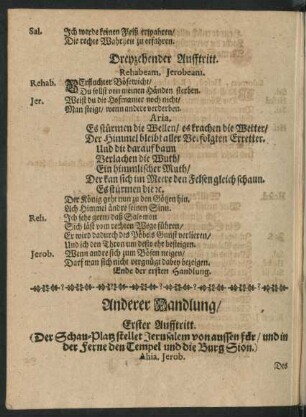 Sal. Ich werde keinen Fleiß erspahren/
Die rechte Wahrheit zu erfahren.
Dreyzehender Aufftritt.
Rehabeam. Jerobeam.
Rehab. Verfluchter Bösewicht/
Du solst von meinen Händen sterben.
Jer. Weist du die Hofmanier noch nicht/
Man steigt/ wenn andre verderben.
Aria.
Es stürmen die Wellen/ es krachen die Wetter/
Der Himmel bleibt aller Verfolgten Erretter.
Und die darauf baun
Verlachen die Wuth/
Ein himmlischer Muth/
Der kan sich im Meere den Felsen gleich schaun.
Es stürmen die ꝛc.
Der König geht nun zu den Götzen hin.
Dich Himmel ändre seinen Sinn.
Reh. Ich sehe gern/ daß Salomon
Sich läst vom rechten Wege führen/
Er wird dadurch des Pöbels Gunst verlieren/
Und ich den Thron um desto ehr besteigen.
Jerob. Wenn andre sich zum Bösen neigen/
Darf man sich nicht vergnügt dabey bezeigen.
Ende der ersten Handlung.
Anderer Handlung/
Erster Aufftritt.
(Der Schau-Platz stellet Jerusalem von aussen für/ und in
der Ferne den Tempel und die Burg Sion.)
Ahia. Jerob.
Des